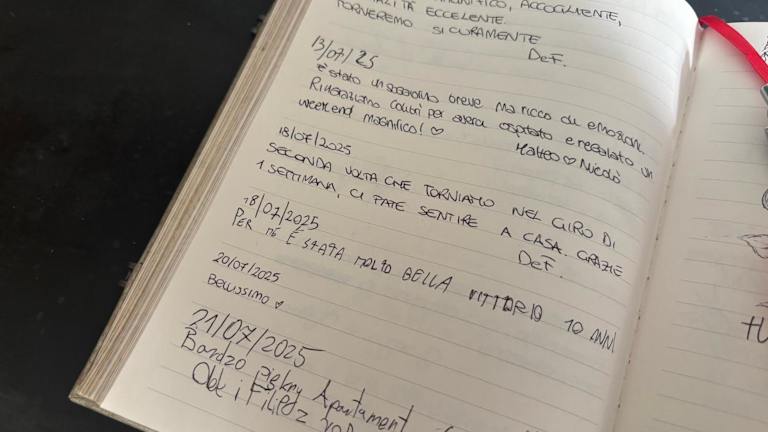 ACCOGLIENTE,
ECCELENTE.
TORNEREMO SICURAMENTE
DeF.
13/07/25
È stato un soggiorno breve ma ricco di emozioni.
Ringraziamo Colibrì per averci ospitato e regalato un
weekend magnifico! ♡
Matteo ♡ Nicolò
18/07/2025
SECONDA VOLTA CHE TORNIAMO NEL GIRO DI
1 SETTIMANA, CI FATE SENTIRE A CASA. GRAZIE
DeF.
18/07/2025
PER ME È STATA MOLTO BELLA VITTORIO 10 ANNI
20/07/2025
Bellissimo ♡
21/07/2025
Bardzo piękny Apartament
i Filip z